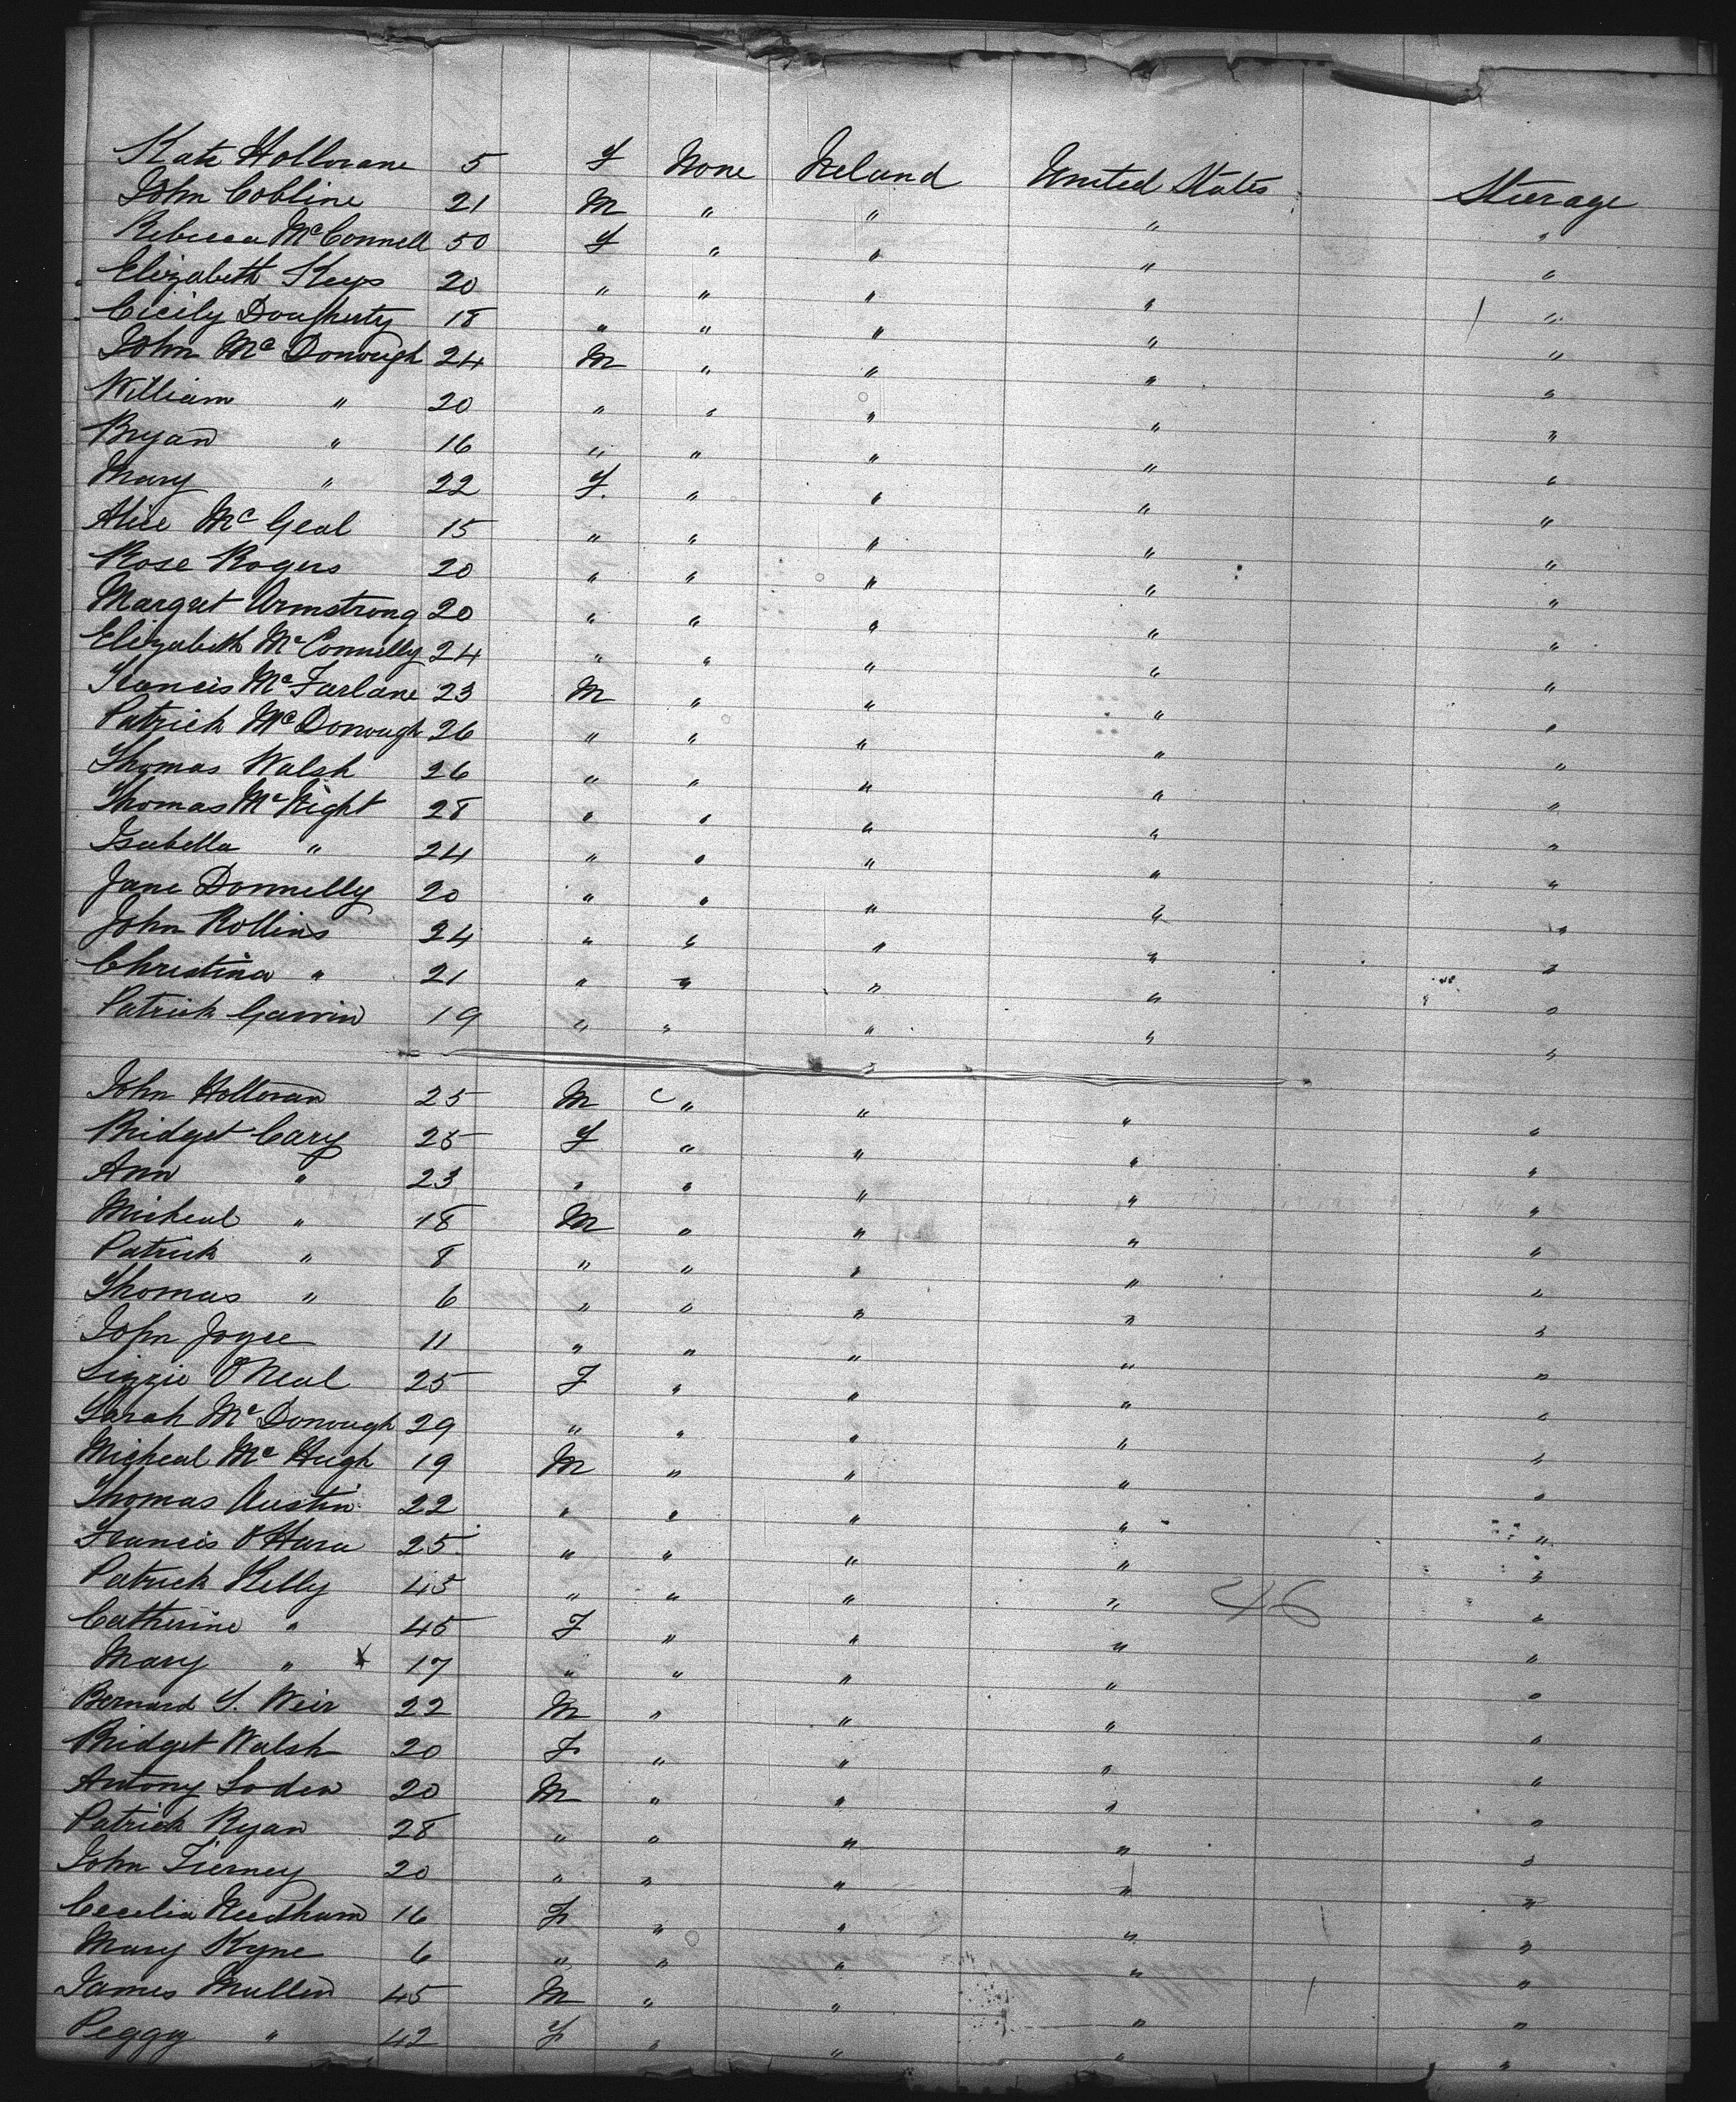 Kate Hollorane 5 F None Ireland United States Steerage
John Cobline 21 M " " " "
Rebecca McConnell 50 F " " " "
Elizabeth Keys 20 " " " " "
Cicily Dougherty 18 " " " " "
John McDonough 24 M " " " "
William " 20 " " " " "
Bryan " 16 " " " " "
Mary " 22 F. " " " "
Alice McGeal 15 " " " " "
Rose Rogers 20 " " " " "
Margret Armstrong 20 " " " " "
Elizabeth McConnelly 24 " " " " "
Francis McFarlane 23 M " " " "
Patrick McDonough 26 " " " " "
Thomas Walsh 26 " " " " "
Thomas McNight 28 " " " " "
Isabella " 24 " " " " "
Jane Donnelly 20 " " " " "
John Rollins 24 " " " " "
Christina " 21 " " " " "
Patrick 19 " " " " "
John Holloran 25 M " " " "
Bridget Cary 25 F " " " "
Ann " 23 " " " " "
Micheal " 18 M " " " "
Patrick " 8 " " " " "
Thomas " 6 " " " " "
John Joyce 11 " " " " "
Lizzie O'Neal 25 F " " " "
Sarah McDonough 29 " " " " "
Micheal McHugh 19 M " " " "
Thomas Austin 22 " " " " "
Francis O'Hara 25 " " " " "
Patrick Kelly 45 " " " " 46 "
Catherine " 45 F " " " "
Mary " X 17 " " " " "
Bernard Weir 22 M " " " "
Bridget Walsh 20 F " " " "
Antony Loden 20 M " " " "
Patrick Ryan 28 " " " " "
John Tierney 20 " " " " "
Cecelia Needham 16 F " " " "
Mary Kyne 6 " " " " "
James Mullin 45 M " " " "
Peggy " 42 F " " " "